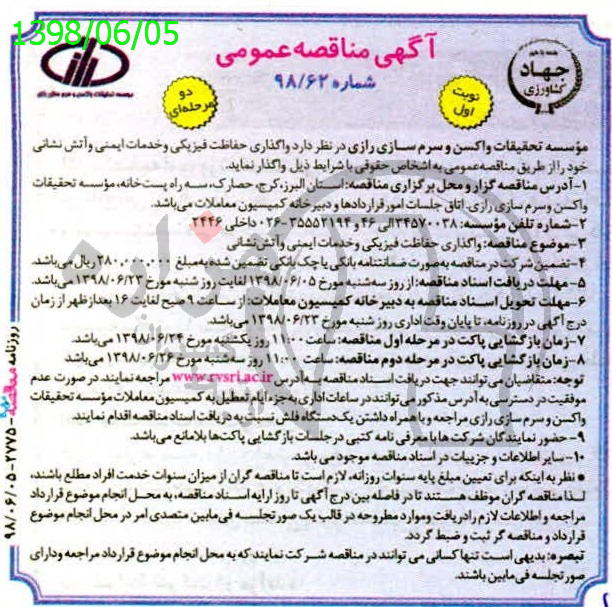 1398/06/05
آگهی مناقصه عمومی
شماره ۹۸/۶۲
همه با هم
جهاد
کشاورزی
نوبت
اول
دو
مرحله‌ای
رازی
موسسه تحقیقات واکسن و سرم سازی رازی
مؤسسه تحقیقات واکسن و سرم سازی رازی در نظر دارد واگذاری حفاظت فیزیکی و خدمات ایمنی و آتش نشانی
خود را از طریق مناقصه عمومی به اشخاص حقوقی با شرایط ذیل واگذار نماید.
۱-آدرس مناقصه گزار و محل برگزاری مناقصه: استان البرز، کرج، حصارک، سه راه پست خانه، مؤسسه تحقیقات
واکسن و سرم سازی رازی. اتاق جلسات امور قراردادها و دبیرخانه کمیسیون معاملات می‌باشد.
۲-شماره تلفن مؤسسه: ۳۴۵۷۰۰۳۸ الی ۴۶ و ۳۵۵۵۲۱۹۴-۰۲۶ داخلی ۲۴۴۶
۳-موضوع مناقصه: واگذاری حفاظت فیزیکی و خدمات ایمنی و آتش نشانی
۴-تضمین شرکت در مناقصه به صورت ضمانتنامه بانکی یا چک بانکی تضمین شده به مبلغ ۲۸۰،۰۰۰،۰۰۰ ریال می‌باشد.
۵-مهلت دریافت اسناد مناقصه: از روز سه شنبه مورخ ۱۳۹۸/۰۶/۰۵ لغایت روز شنبه مورخ ۱۳۹۸/۰۶/۲۳ می‌باشد.
۶-مهلت تحویل اسناد مناقصه به دبیرخانه کمیسیون معاملات: از ساعت ۹ صبح لغایت ۱۶ بعد از ظهر از زمان
درج آگهی در روزنامه، تا پایان وقت اداری روز شنبه مورخ ۱۳۹۸/۰۶/۲۳ می‌باشد.
۷-زمان بازگشایی پاکت در مرحله اول مناقصه: ساعت ۱۱:۰۰ روز یکشنبه مورخ ۱۳۹۸/۰۶/۲۴ می‌باشد.
۸-زمان بازگشایی پاکت در مرحله دوم مناقصه: ساعت ۱۱:۰۰ روز سه شنبه مورخ ۱۳۹۸/۰۶/۲۶ می‌باشد
توجه: متقاضیان می توانند جهت دریافت اسناد مناقصه به آدرس www.rvsri.ac.ir مراجعه نمایند. در صورت عدم
موفقیت در دسترسی به آدرس مذکور می توانند در ساعات اداری به جز ایام تعطیل به کمیسیون معاملات مؤسسه تحقیقات
واکسن و سرم سازی رازی مراجعه و با همراه داشتن یک دستگاه فلش نسبت به دریافت اسناد مناقصه اقدام نمایند.
۹-حضور نمایندگان شرکت ها با معرفی نامه کتبی در جلسات بازگشایی پاکت‌ها بلامانع می‌باشد.
۱۰-سایر اطلاعات و جزییات در اسناد مناقصه موجود می باشد.
● نظر به اینکه برای تعیین مبلغ پایه سنوات روزانه، لازم است تا مناقصه گران از میزان سنوات خدمت افراد مطلع باشند،
لذا مناقصه گران موظف هستند تا در فاصله بین درج آگهی تا روز ارایه اسناد مناقصه، به محل انجام موضوع قرارداد
مراجعه و اطلاعات لازم را دریافت و موارد مطروحه در قالب یک صورتجلسه فی مابین متصدی امر در محل انجام موضوع
قرارداد و مناقصه گر ثبت و ضبط گردد.
تبصره: بدیهی است تنها کسانی می توانند در مناقصه شرکت نمایند که به محل انجام موضوع قرارداد مراجعه و دارای
صورتجلسه فی مابین باشند.
روزنامه مناقصه ۲۷۷۵-۹۸/۰۶/۰۵